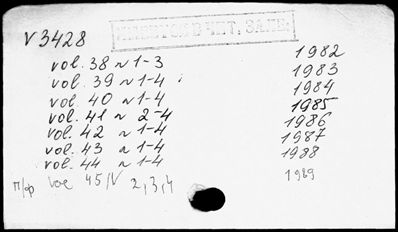 ИМЕЕТСЯ В ЧИТ. ЗАЛЕ.
V 3428
vol. 38 N 1-3 1982
vol. 39 N 1-4 1983
vol. 40 N 1-4 1984
vol. 41 N 2-4 1985
vol. 42 N 1-4 1986
vol. 43 N 1-4 1987
vol. 44 N 1-4 1988
п/ф vol 45/N 2,3,4 1989